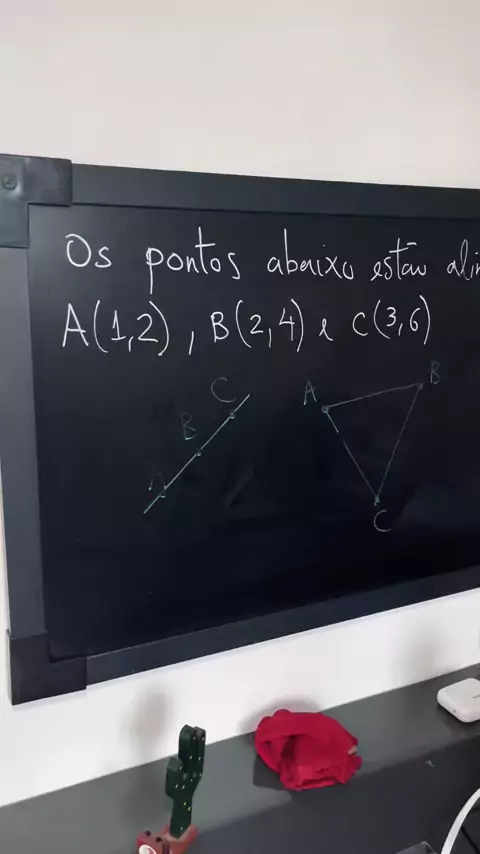 Os pontos abaixo estão
A(1,2), B(2,4) e C(3,6)
C
B
A
A
B
C